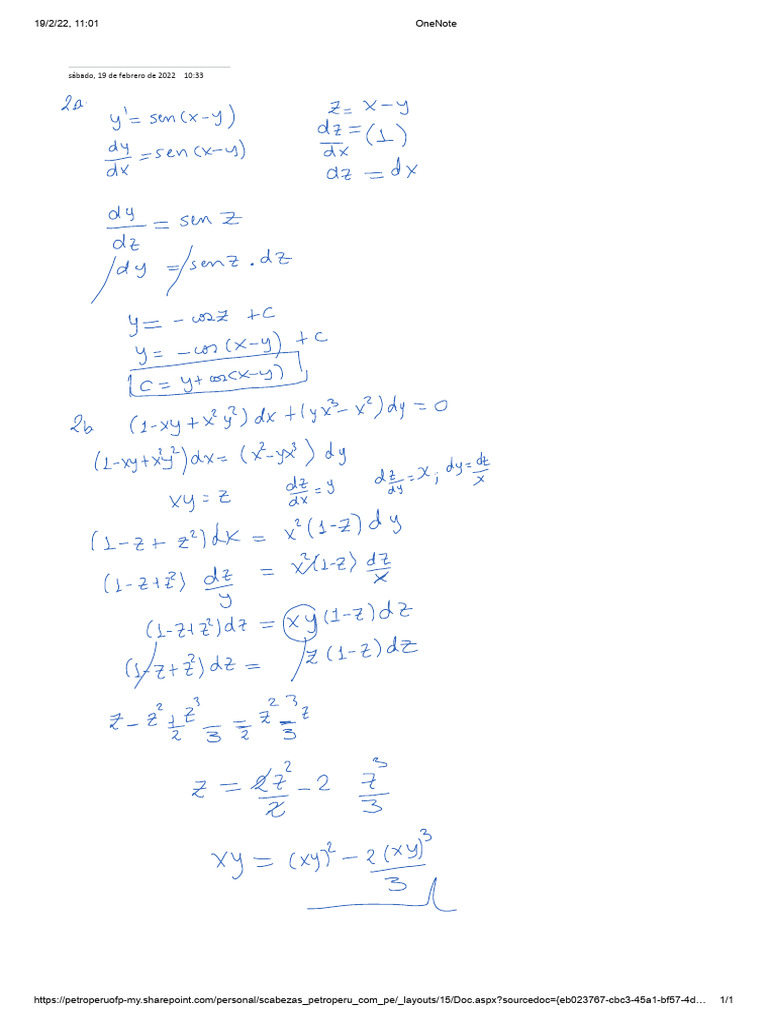 19/2/22, 11:01 OneNote
sábado, 19 de febrero de 2022 10:33
2a.
y' = sen(x-y) z = x-y
dy/dx = sen(x-y) dz/dx = (1)
dz = dx
dy/dz = sen z
∫dy = ∫senz . dz
y = - cosz + c
y = -cos(x-y) + c
c = y+cos(x-y)
2b (1-xy+x²y²)dx+(yx³-x²)dy=0
(1-xy+x²y²)dx=(x²-yx³)dy
xy = z dz/dx = y dz/dy = x; dy = dz/x
(1-z+z²)dx = x²(1-z)dy
(1-z+z²) dz/y = x²(1-z) dz/x
(1-z+z²)dz = xy(1-z)dz
∫(1-z+z²)dz = ∫z(1-z)dz
z - z²/2 + z³/3 = z²/2 - z³/3
z = 2z²/2 - 2 z³/3
xy = (xy)² - 2(xy)³/3
https://petroperuofp-my.sharepoint.com/personal/scabezas_petroperu_com_pe/_layouts/15/Doc.aspx?sourcedoc={eb023767-cbc3-45a1-bf57-4d… 1/1